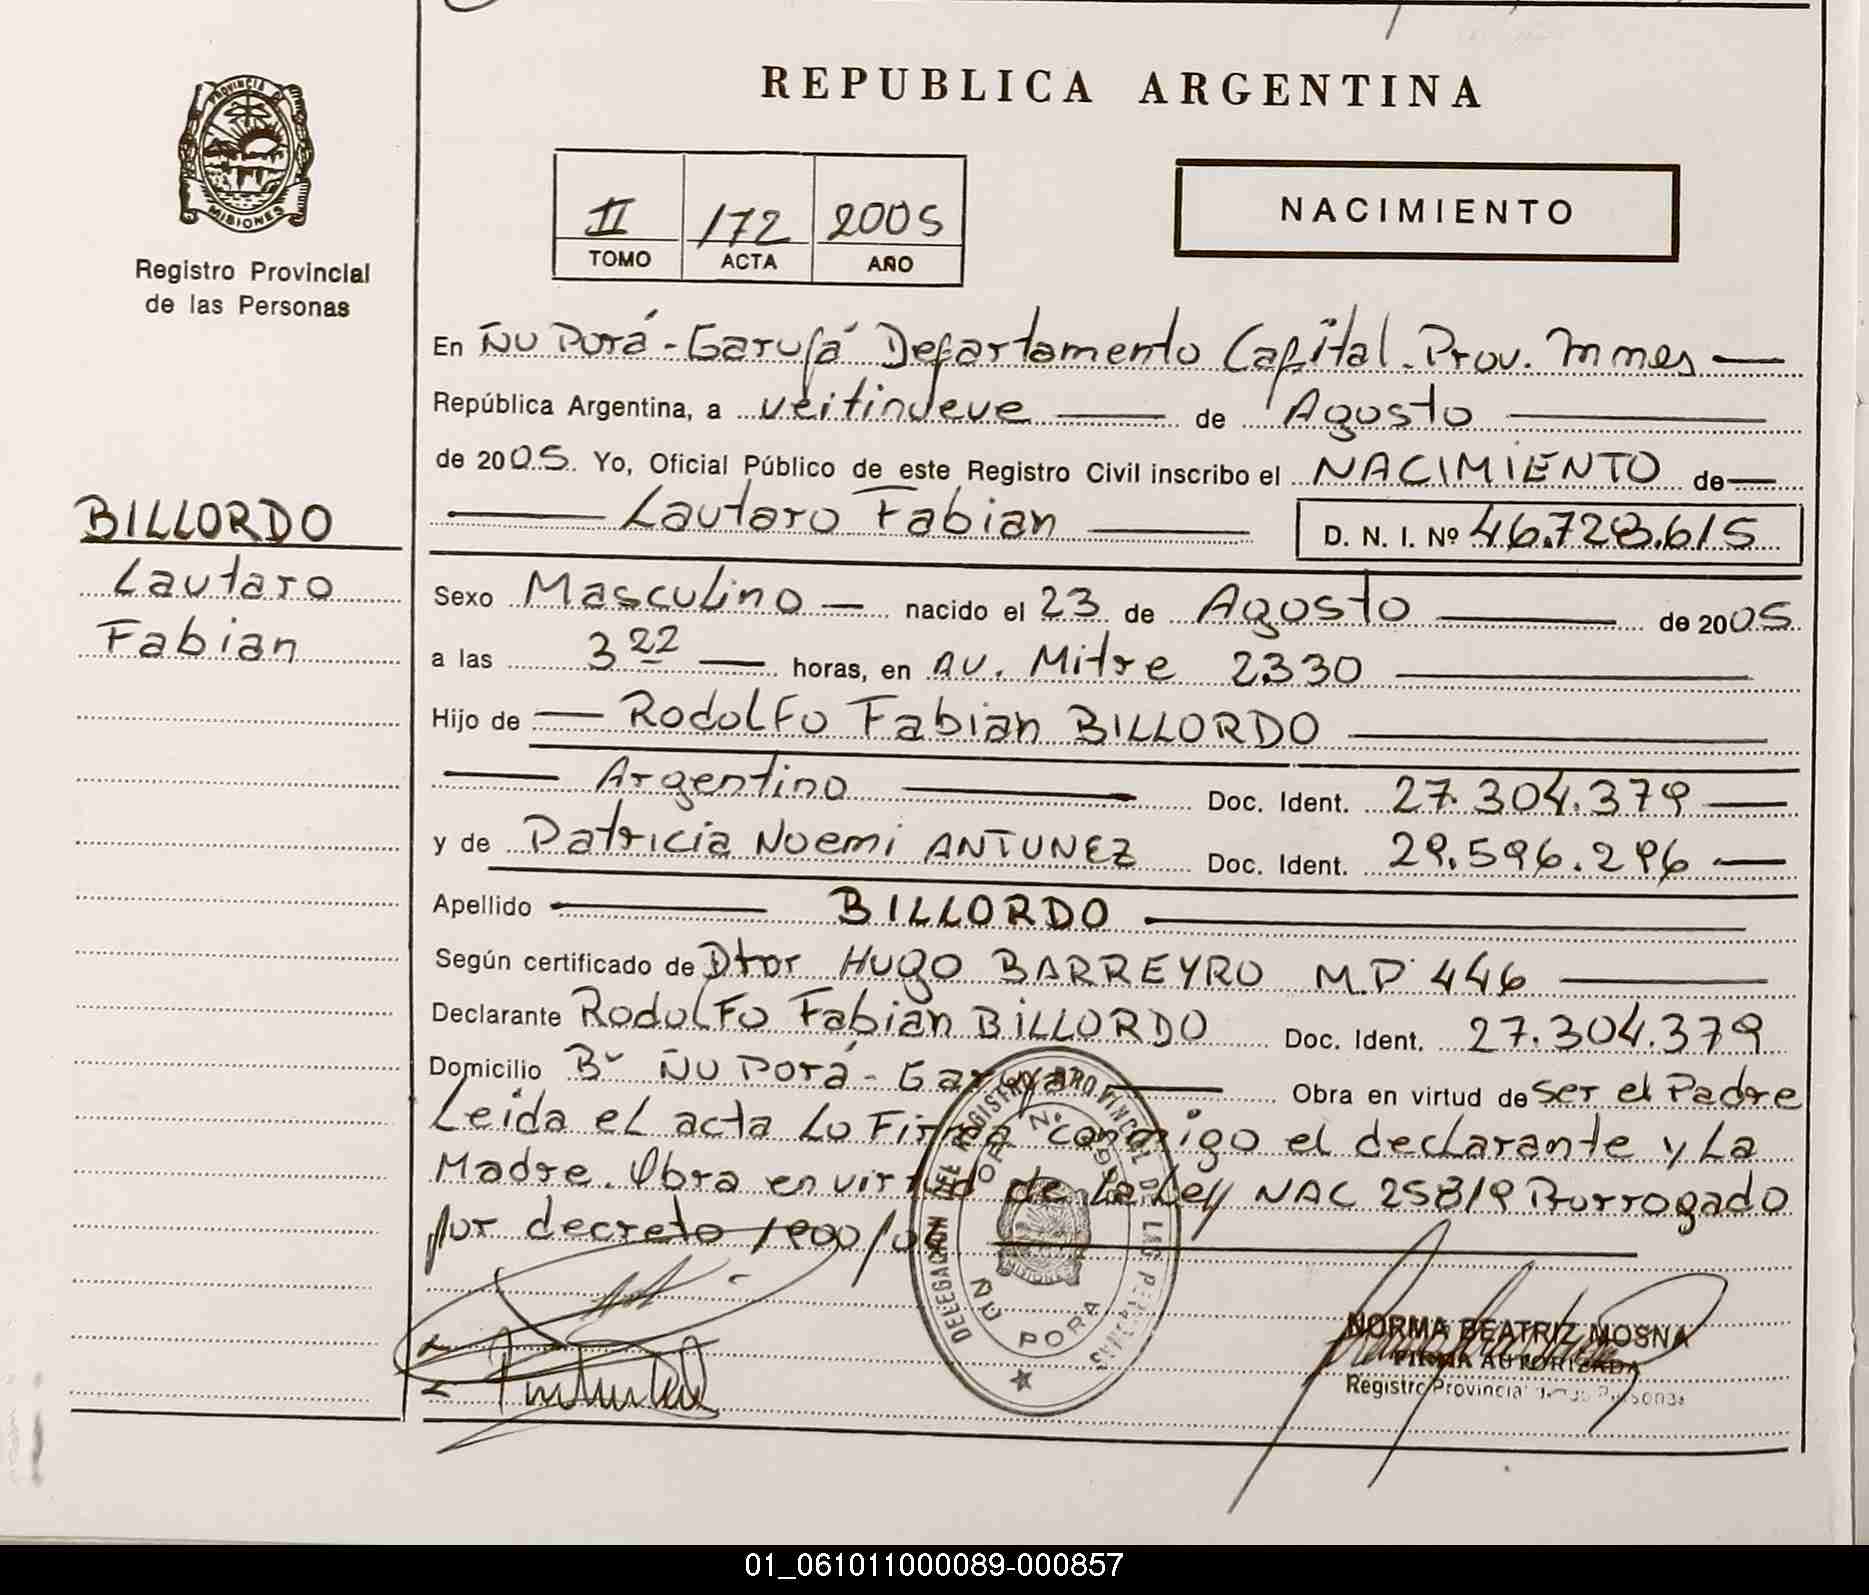 REPUBLICA ARGENTINA
PROVINCIA DE
MISIONES
Registro Provincial
de las Personas
II 172 2005
TOMO ACTA AÑO
NACIMIENTO
BILLORDO
Lautaro
Fabian
En Ñu Porá - Garupá Departamento Capital. Prov. Mnnes
República Argentina, a veitinueve de Agosto
de 2005. Yo, Oficial Público de este Registro Civil inscribo el NACIMIENTO de
Lautaro Fabian D. N. I. Nº 46.728.615
Sexo Masculino nacido el 23 de Agosto de 2005
a las 3 22 horas, en AV. Mitre 2330
Hijo de Rodolfo Fabian BILLORDO
Argentino Doc. Ident. 27.304.379
y de Patricia Noemi ANTUNEZ Doc. Ident. 29.596.296
Apellido BILLORDO
Según certificado de Dtor HUGO BARREYRO M.P 446
Declarante Rodolfo Fabian BILLORDO Doc. Ident. 27.304.379
Domicilio Bº Ñu Porá - Garupá Obra en virtud de ser el Padre
Leida el acta Lo Firma conmigo el declarante y La
Madre. Obra en virtud de La Ley NAC 25819 Prorrogado
por decreto 1900/04
DELEGACION DEL REGISTRO PROVINCIAL DE LAS PERSONAS
ÑU PORA
MISIONES
NORMA BEATRIZ MOSNA
FIRMA AUTORIZADA
Registro Provincial de las Personas
01_061011000089-000857